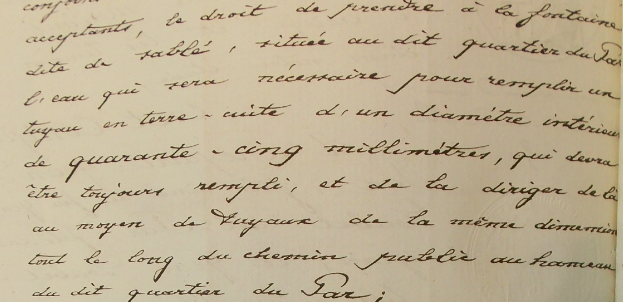 conjoin
acceptants, le droit de prendre à la fontaine
dite de sablé, située au dit quartier du Par
l'eau qui sera nécessaire pour remplir un
tuyau en terre-cuite d'un diamétre intérieur
de quarante-cinq millimétres, qui devra
être toujours rempli, et de la diriger de là
au moyen de tuyaux de la même dimension
tout le long du chemin public au hameau
du dit quartier du Par;